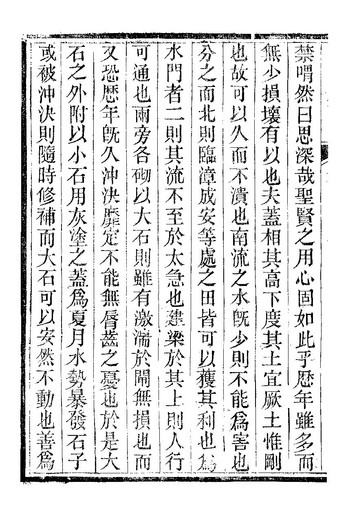 禁喟然曰思深哉聖賢之用心固如此乎歷年雖多而
無少損壞有以也夫蓋相其高下度其土宜厥土惟剛
也故可以久而不潰也南流之水旣少則不能爲害也
分之而北則臨漳成安等處之田皆可以獲其利也爲
水門者二則其流不至於太急也建梁於其上則人行
可通也兩旁各砌以大石則雖有激湍於閘無損也而
又恐歷年旣久冲決靡定不能無脣齒之憂也於是大
石之外附以小石用灰塗之蓋爲夏月水勢暴發石子
或被冲決則隨時修補而大石可以安然不動也善爲